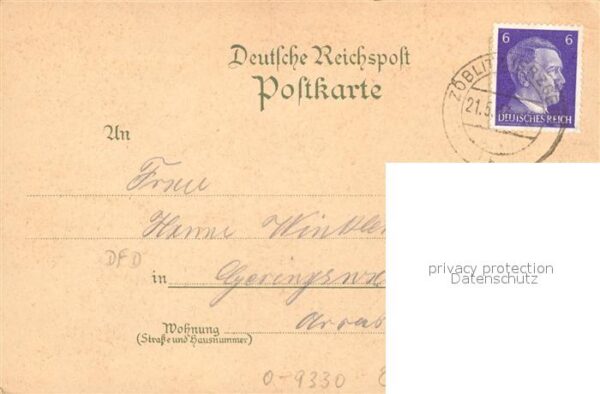 Deutsche Reichspost
Postkarte
6 6
DEUTSCHES REICH
ZÖBLITZ
21.5.
An
Frau
Hanne Winkler
DFD
in Geringswa
Arras
Wohnung
(Straße und Hausnummer)
0-9330
privacy protection
Datenschutz